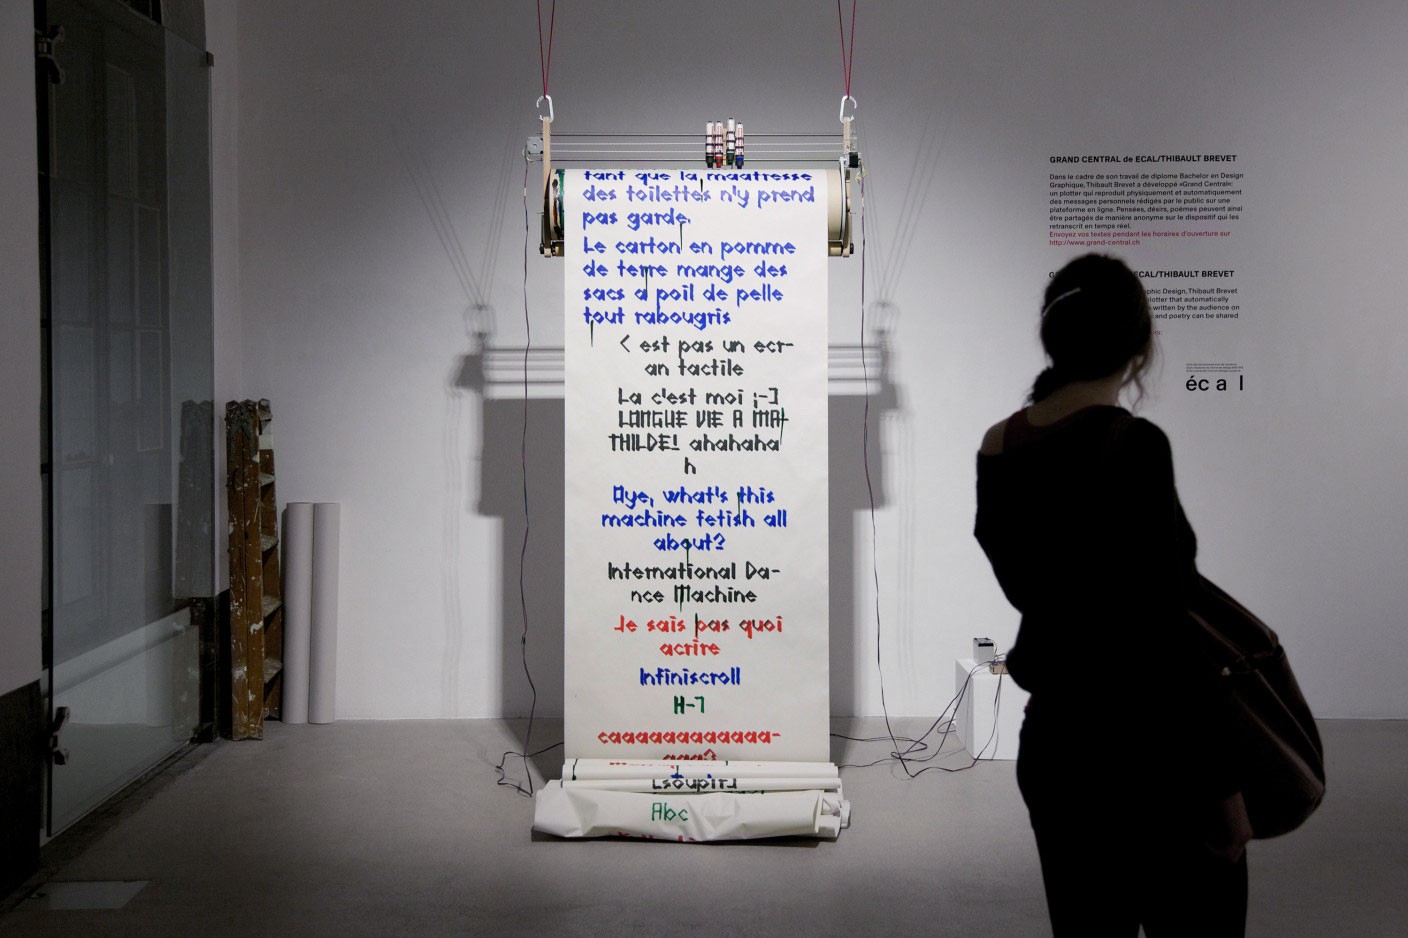 tant que la maatresse
des toilettes n'y prend
pas garde.
Le carton en pomme
de terre mange des
sacs a poil de pelle
tout rabougris
< est pas un ecr-
an tactile
La c'est moi ;-]
LONGUE VIE A MA-
THILDE! ahahaha
h
Aye, what's this
machine fetish all
about?
International Da-
nce Machine
Je sais pas quoi
acrire
Infiniscroll
H-7
caaaaaaaaaaaaa-
aaa?
[soupir]
Abc
GRAND CENTRAL de ECAL/THIBAULT BREVET
Dans le cadre de son travail de diplome Bachelor en Design
Graphique, Thibault Brevet a développé «Grand Central»:
un plotter qui reproduit physiquement et automatiquement
des messages personnels rédigés par le public sur une
plateforme en ligne. Pensées, désirs, poèmes peuvent ainsi
être partagés de manière anonyme sur le dispositif qui les
retranscrit en temps réel.
Envoyez vos textes pendant les horaires d'ouverture sur
http://www.grand-central.ch
ECAL/THIBAULT BREVET
Graphic Design, Thibault Brevet
plotter that automatically
written by the audience on
and poetry can be shared
écal